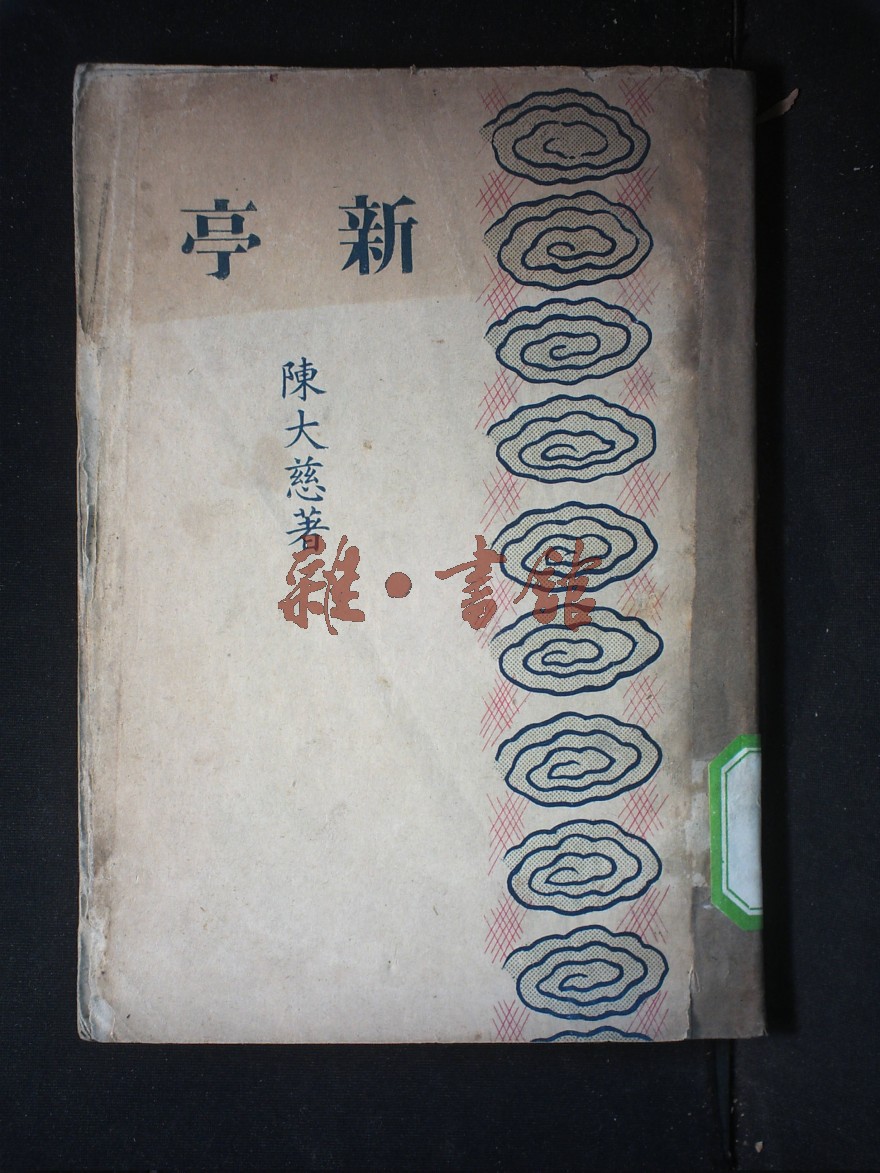 新亭
陳大慈著
雜·書館